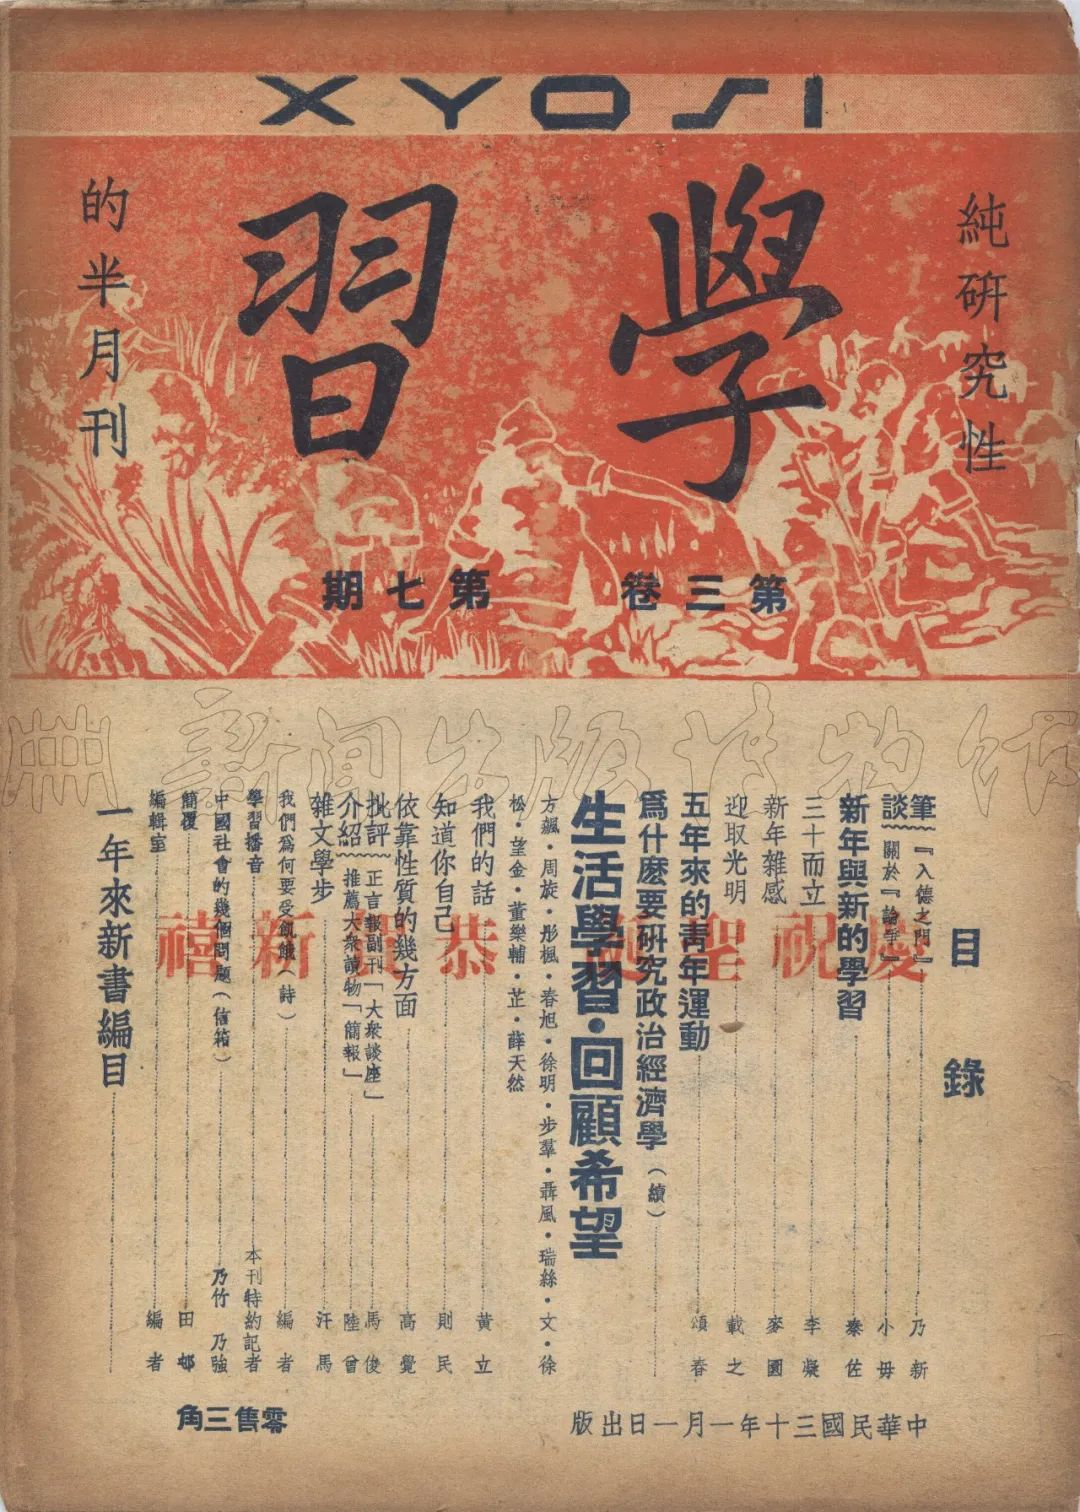 XYOSI
學習
純研究性
的半月刊
第三卷 第七期
新闻出版博物馆
慶祝聖誕 恭賀新禧
目錄
筆談
『入德之門』 乃新
關於『論爭』 小毋
新年與新的學習 秦佐
三十而立 李凝
新年雜感 麥園
迎取光明 載之
五年來的青年運動 頌春
爲什麽要研究政治經濟學（續）
生活學習·回顧希望
方飆·周旋·彤楓·春旭·徐明·步羣·聶風·瑞絲·文·徐
松·望金·董樂輔·芷·薛天然
我們的話 黃立
知道你自己 則民
依靠性質的幾方面 高覺
批評 正言報副刊「大衆談座」 馬俊
介紹 推薦大衆讀物「簡報」 陸曾
雜文學步 汗馬
我們爲何要受飢餓（詩） 編者
學習播音 本刊特約記者
中國社會的幾個問題（信箱） 乃竹 乃強
簡覆 田邨
編輯室 編者
一年來新書編目
中華民國三十年一月一日出版
零售三角